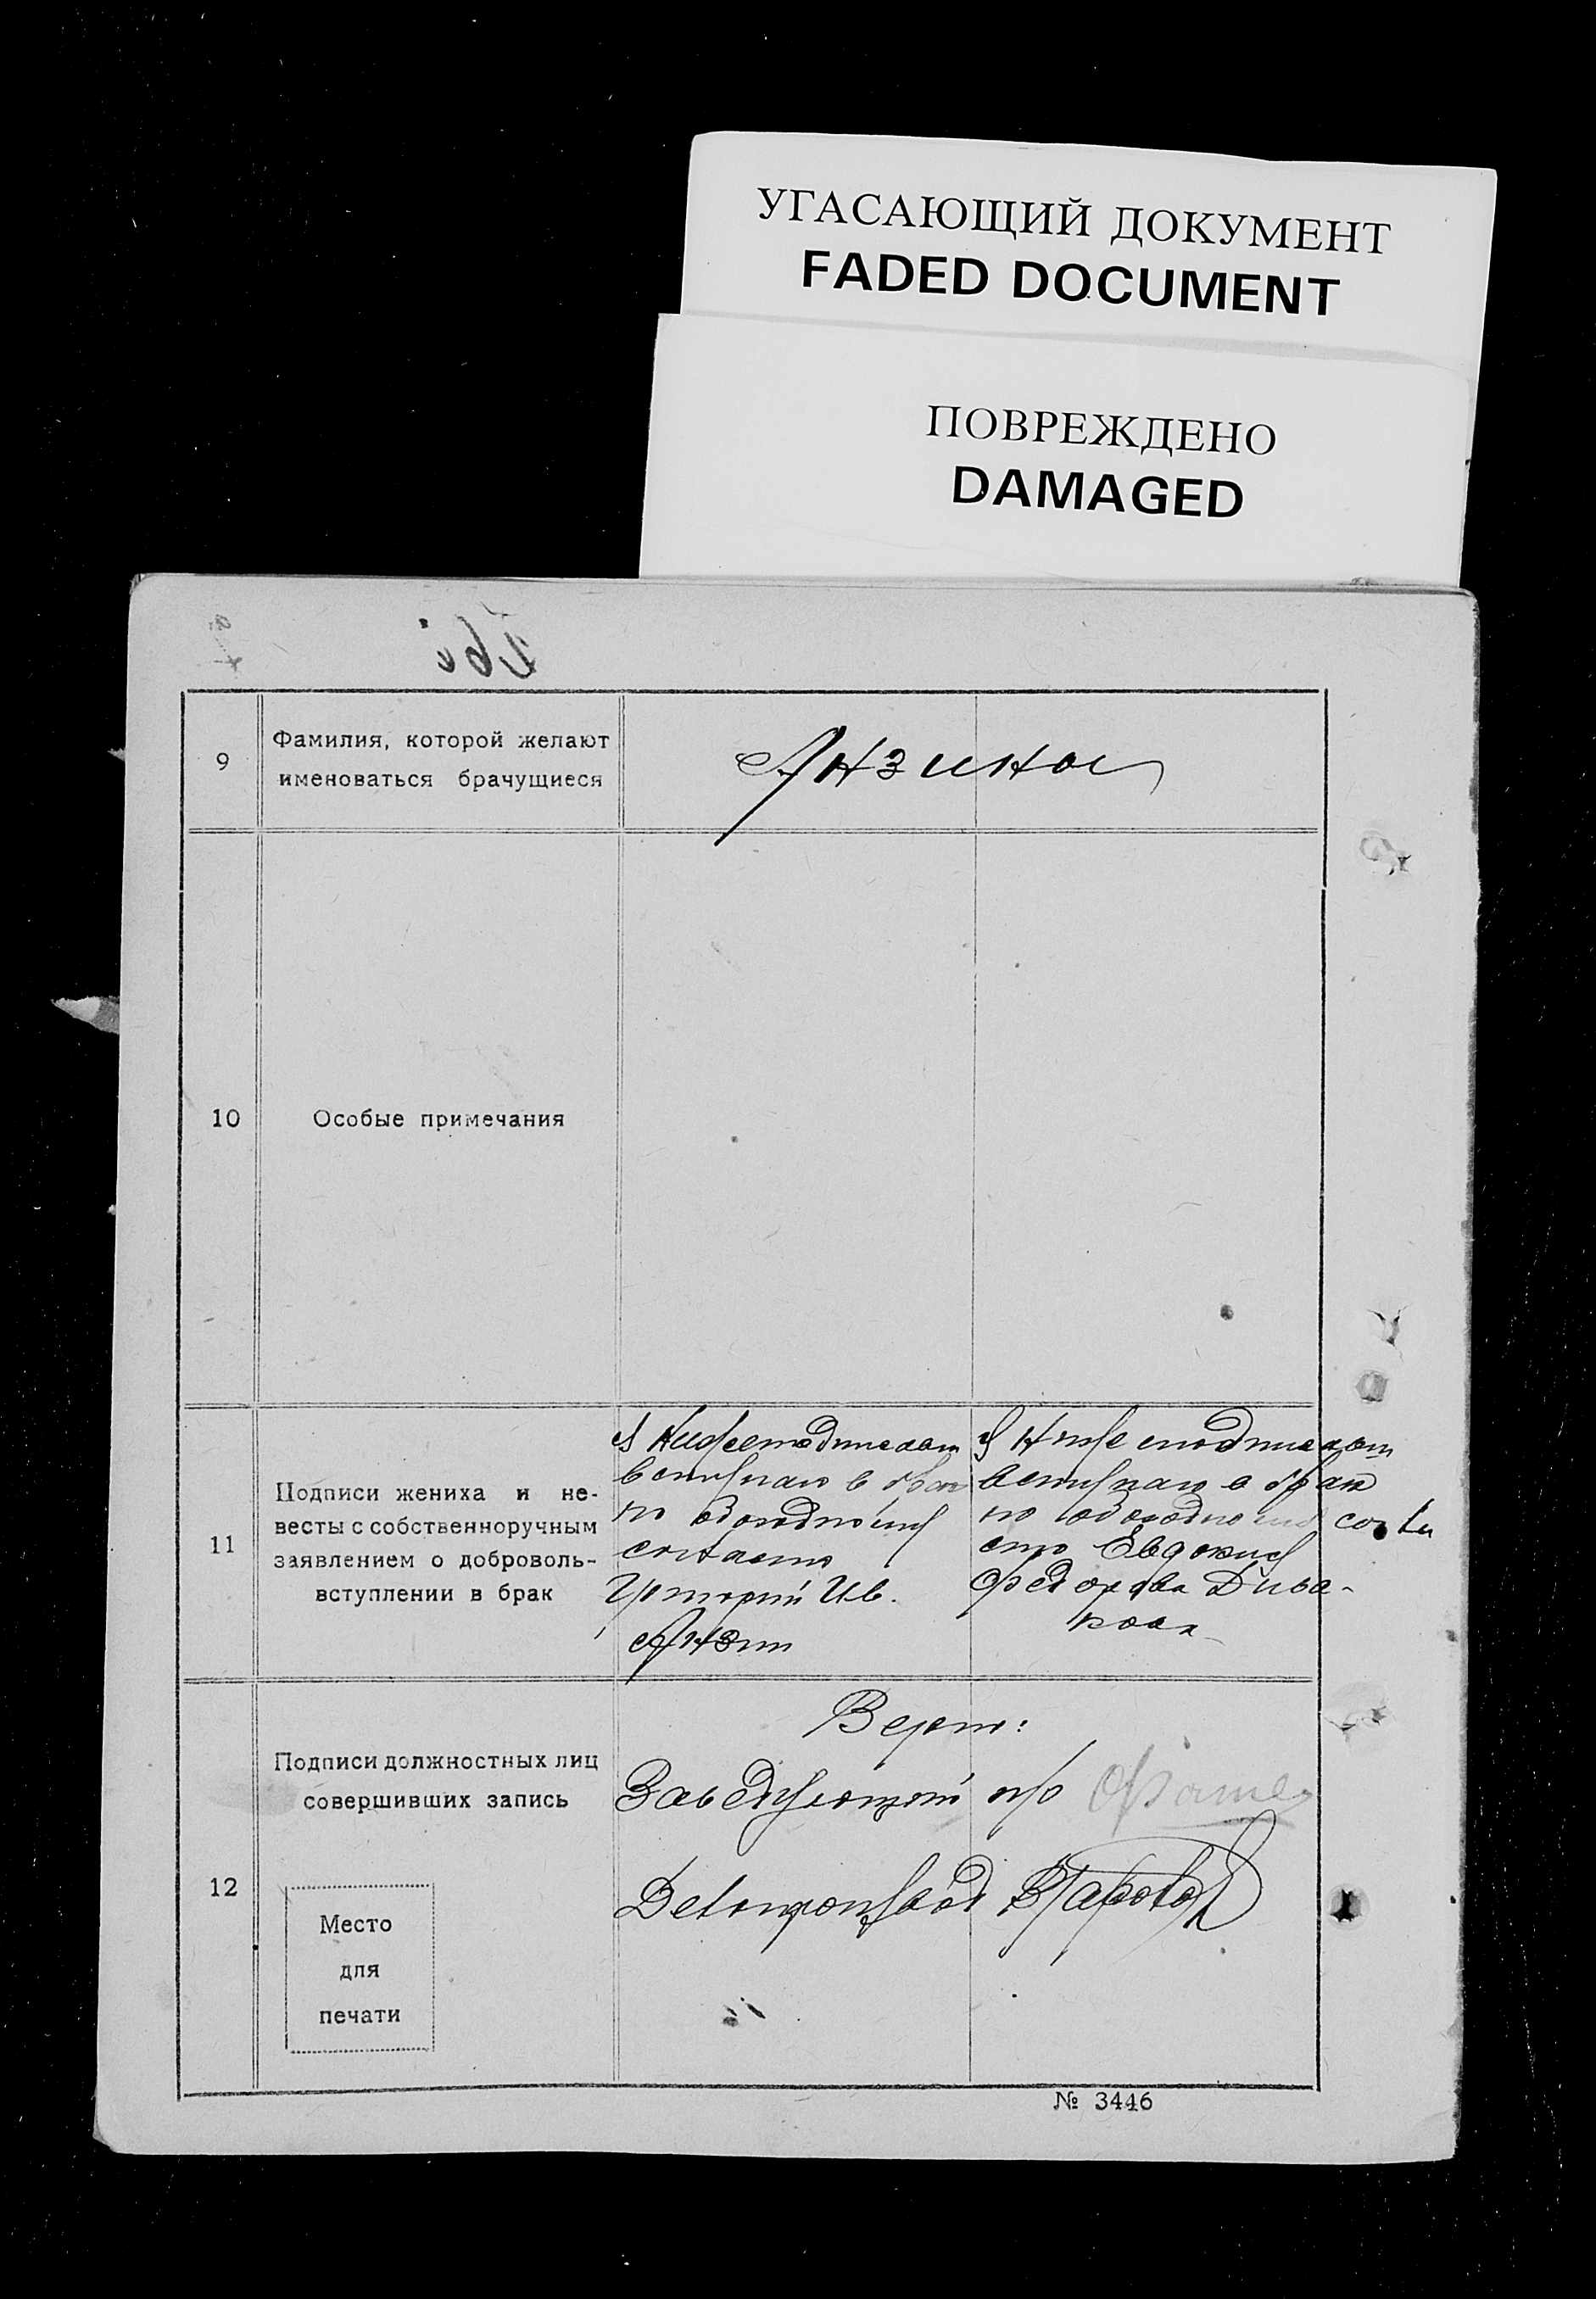 УГАСАЮЩИЙ ДОКУМЕНТ
FADED DOCUMENT
ПОВРЕЖДЕНО
DAMAGED
9
Фамилия, которой желают
именоваться брачущиеся
Анзины
10
Особые примечания
11
Подписи жениха и не-
весты с собственноручным
заявлением о доброволь-
вступлении в брак
Я Нижеподписал
вступаю в брак
по обоюдному
согласию
Григорий Ив.
Анзин
Я Нижеподписал
вступаю в брак
по обоюдному согла
сию Евдокия
Федорова
12
Подписи должностных лиц
совершивших запись
Место
для
печати
Верно:
Заведующий п/о
Делопроизвод
№ 3446